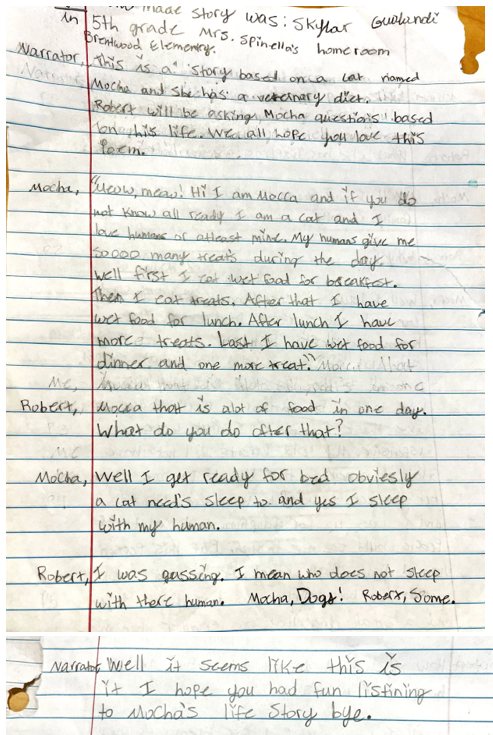 made story was: Skylar
in 5th grade Mrs. Spinella's homeroom
Brentwood Elementry.
Narrator, This is a story based on a cat named
Mocha and she has a veternary diet.
Robert will be asking Mocha questions based
on his life. We all hope you love this
Poem.
Mocha, "Meow, meow! Hi I am Mocca and if you do
not know all ready I am a cat and I
love humans or atleast mine. My humans give me
soooo many treats during the day
well first I eat wet food for breakfest.
Then I eat treats. After that I have
wet food for lunch. After lunch I have
more treats. Last I have wet food for
dinner and one more treat."
Robert, Mocca that is alot of food in one day.
What do you do after that?
Mocha, Well I get ready for bed obviesly
a cat need's sleep to and yes I sleep
with my human.
Robert, I was gussing. I mean who does not sleep
with there human. Mocha, Dogs! Robert, Some.
Narrator, Well it seems like this is
it I hope you had fun listining
to Mocha's life story bye.